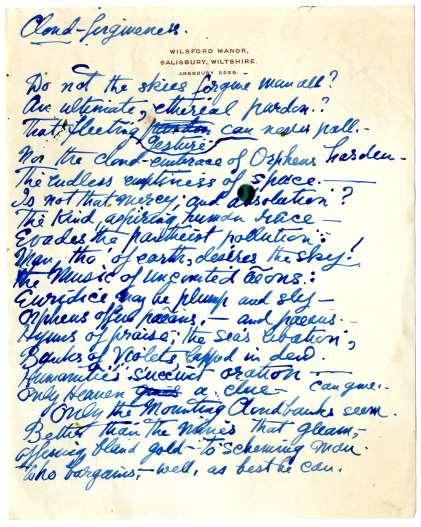 Cloud-forgiveness.
WILSFORD MANOR,
SALISBURY, WILTSHIRE.
AMESBURY
Do not the skies forgive man all?
An ultimate, ethereal pardon.?
That fleeting gesture can never pall.-
Nor the cloud-embrace of Orpheus harden-
The endless emptiness of space.-
Is not that mercy, and absolution?
The kind, aspiring human race-
Evades the pantheist pollution:-
Man, tho' of earth, desires the sky!
the Music of Æons:
Eurydice may be plump and sly-
Orpheus paeans,- and paeons.-
Hymns of praise; the sea's libation;
Banks of Violets lapped in dew.
Humanities succinct oration-
Only Heaven a clue- can give.-
Only the Mounting Cloudbanks seem.
Better than the that gleam,-
offering bland gold-to scheming man.
Who bargains,-well, as best he can.